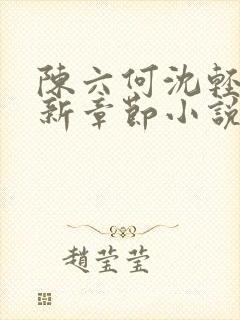 陳六何沈輕
新章節小說
趙瑩瑩